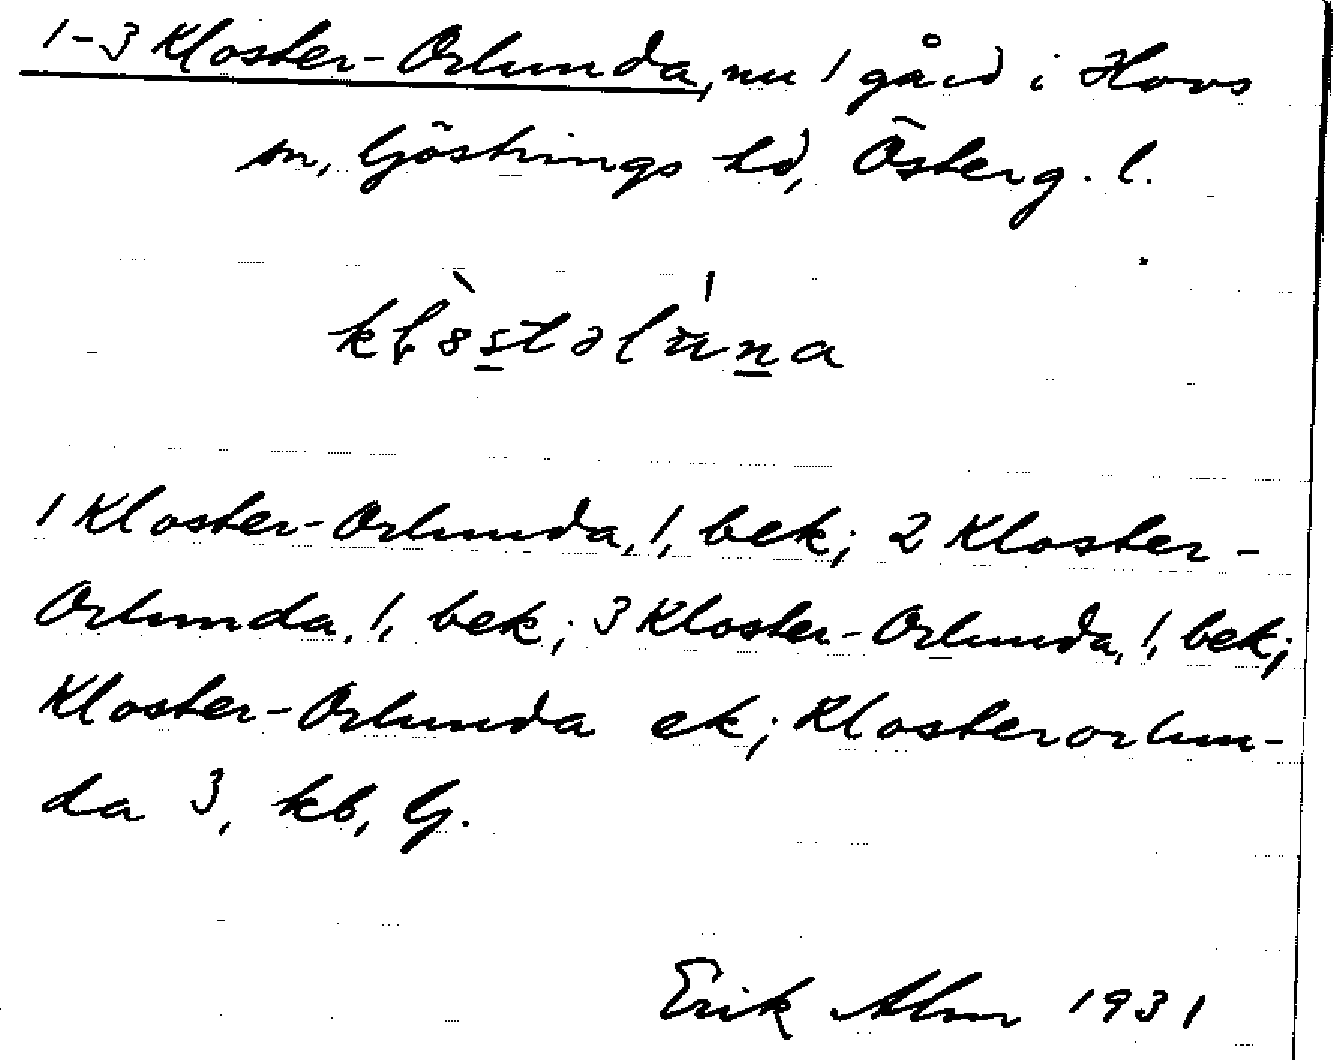 1-3 Kloster-Orlunda, nu 1 gård i Hovs
sn, Göstrings hd, Österg. l.
1 Kloster-Orlunda, 1, bek; 2 Kloster-
Orlunda, 1, bek; 3 Kloster-Orlunda, 1, bek;
Kloster-Orlunda ek; Klosterorlun-
da 3, kb, G.
Erik Alm 1931